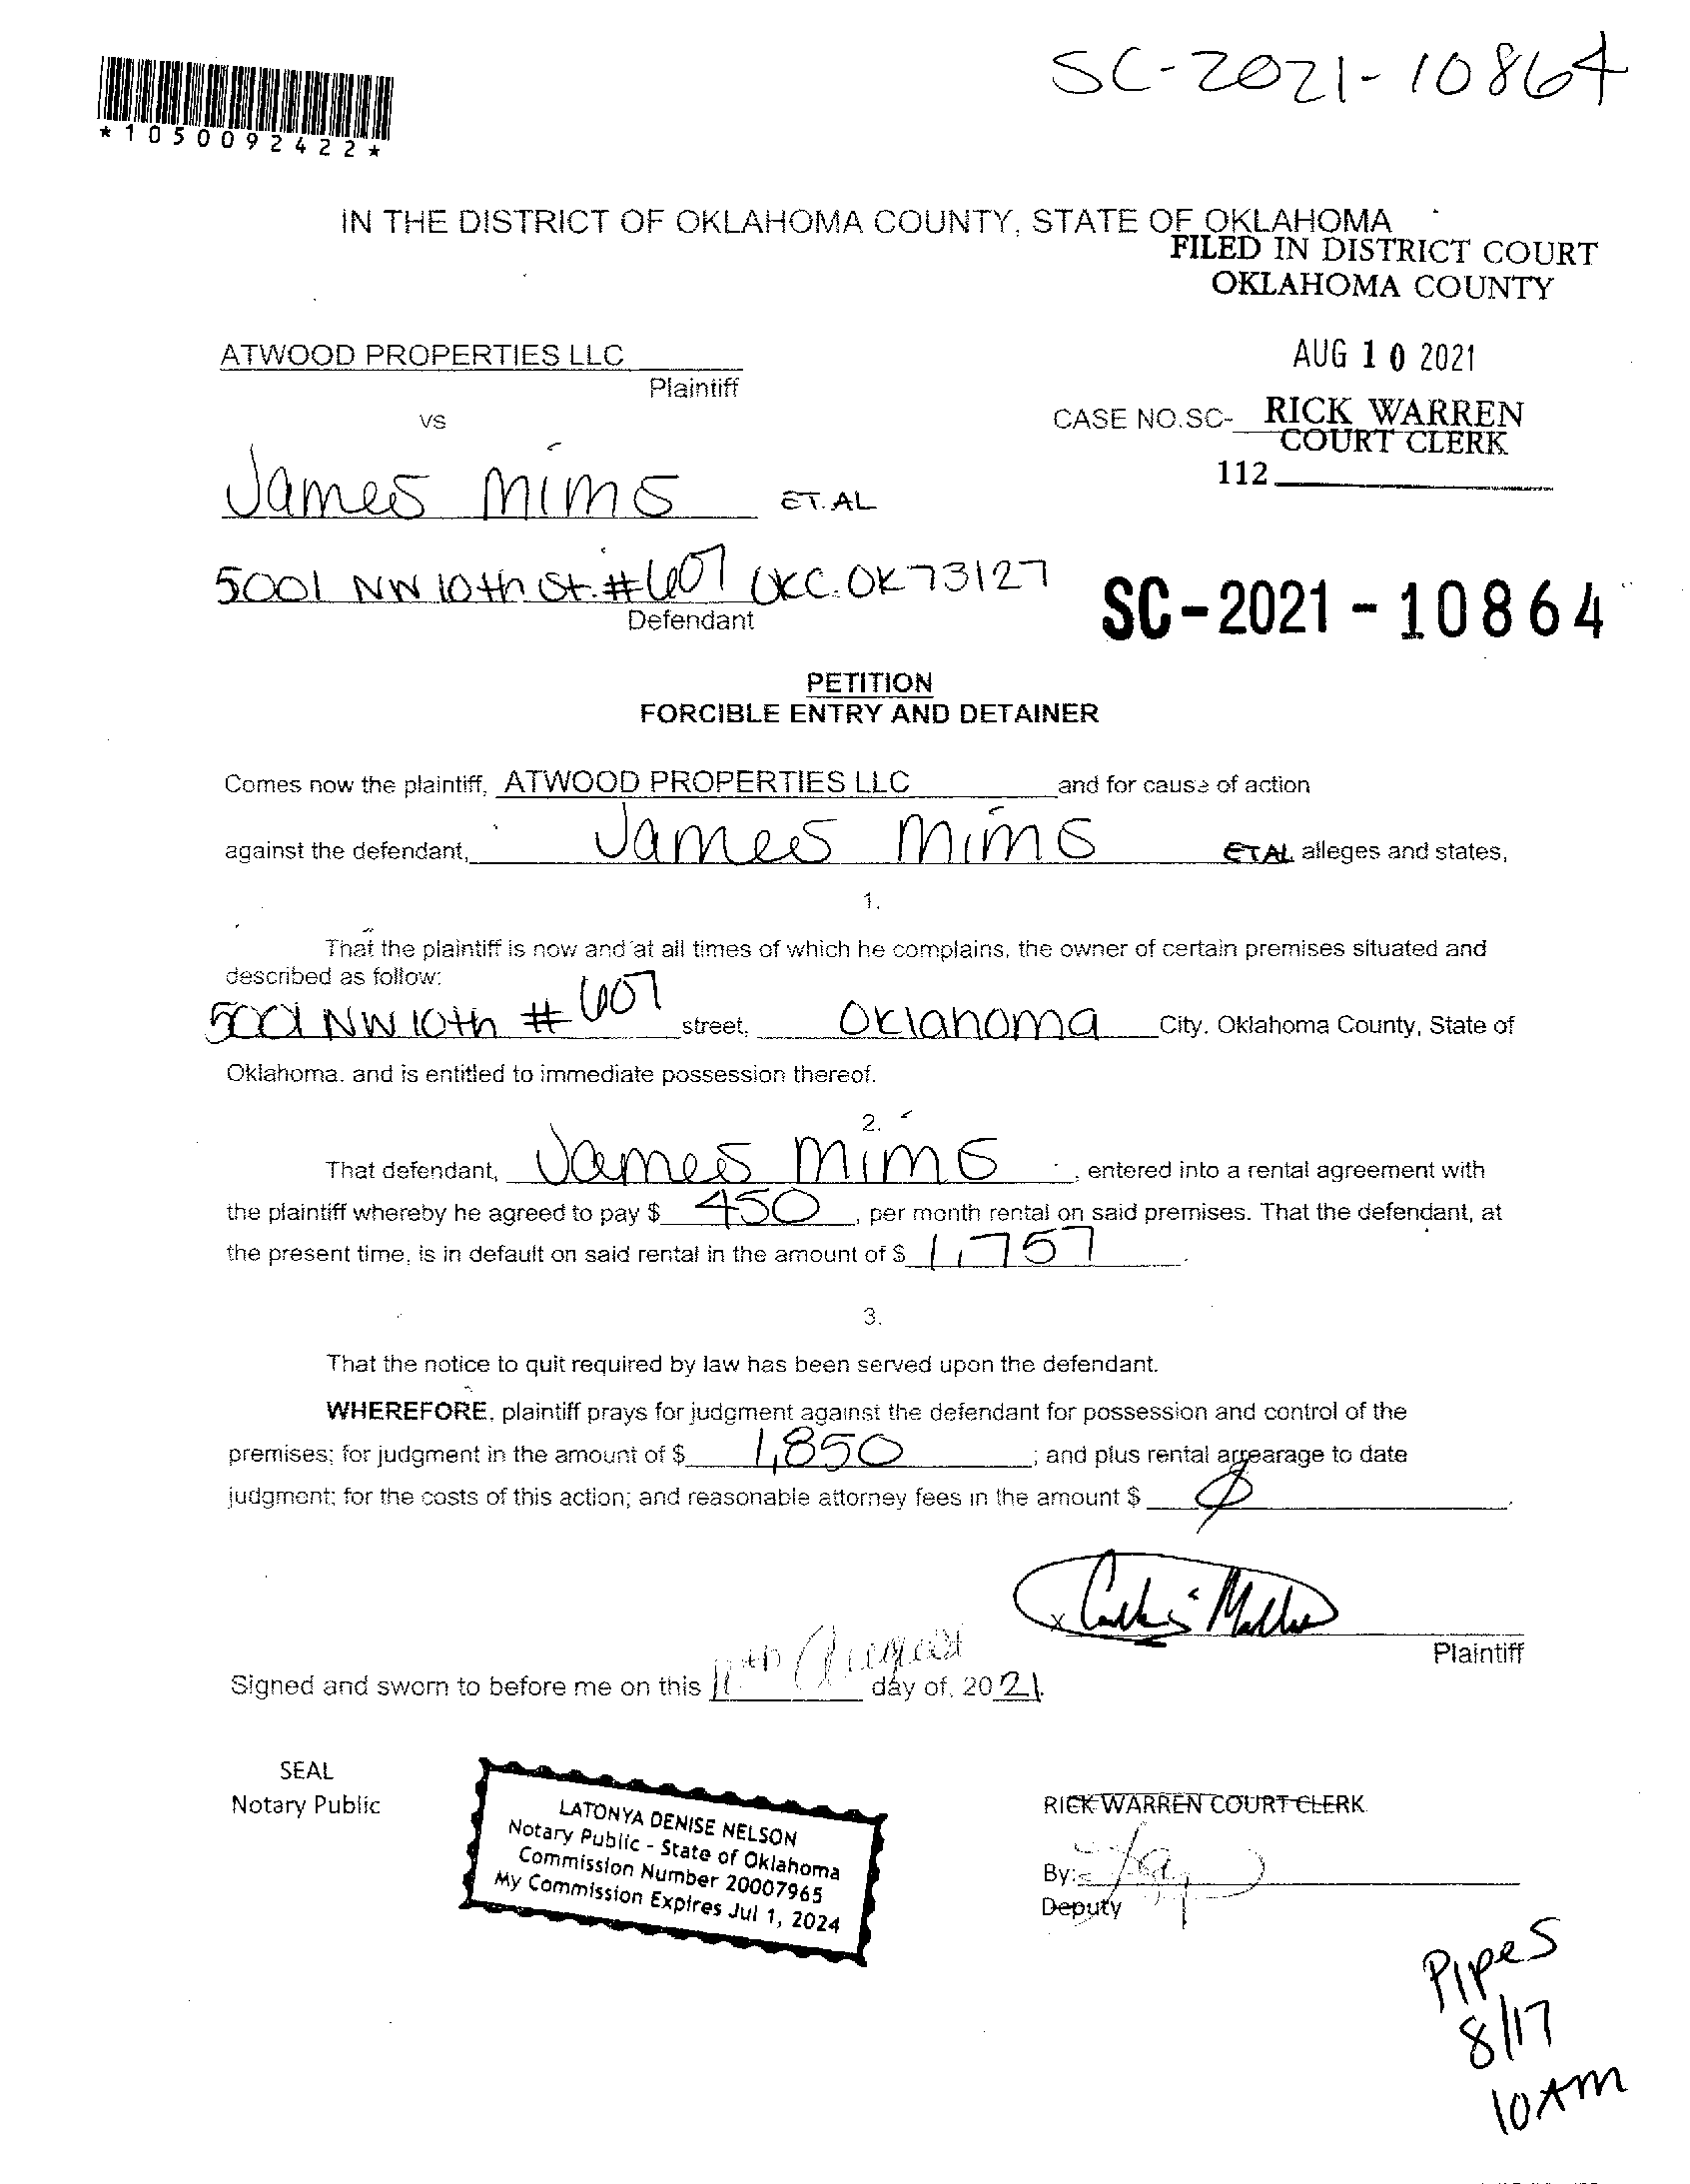 SC-2021-10864
*1050092422*
IN THE DISTRICT OF OKLAHOMA COUNTY, STATE OF OKLAHOMA
FILED IN DISTRICT COURT
OKLAHOMA COUNTY
ATWOOD PROPERTIES LLC
AUG 10 2021
Plaintiff
vs
CASE NO.SC- RICK WARREN
COURT CLERK
112
James Mims ET.AL
5001 NW 10th St. #607 OKC. OK 73127
Defendant
SC-2021-10864
PETITION
FORCIBLE ENTRY AND DETAINER
Comes now the plaintiff, ATWOOD PROPERTIES LLC and for cause of action
against the defendant, James Mims ETAL alleges and states,
1.
That the plaintiff is now and at all times of which he complains, the owner of certain premises situated and
described as follow:
5001 NW 10th #607 street, Oklahoma City. Oklahoma County, State of
Oklahoma. and is entitled to immediate possession thereof.
2.
That defendant, James Mims, entered into a rental agreement with
the plaintiff whereby he agreed to pay $ 450, per month rental on said premises. That the defendant, at
the present time, is in default on said rental in the amount of $ 1,757.
3.
That the notice to quit required by law has been served upon the defendant.
WHEREFORE, plaintiff prays for judgment against the defendant for possession and control of the
premises; for judgment in the amount of $ 1,850; and plus rental arrearage to date
judgment; for the costs of this action; and reasonable attorney fees in the amount $
x
Plaintiff
Signed and sworn to before me on this August day of, 2021.
SEAL
Notary Public
LATONYA DENISE NELSON
Notary Public - State of Oklahoma
Commission Number 20007965
My Commission Expires Jul 1, 2024
RICK WARREN COURT CLERK
By:
Deputy
Pipes
8/17
10AM